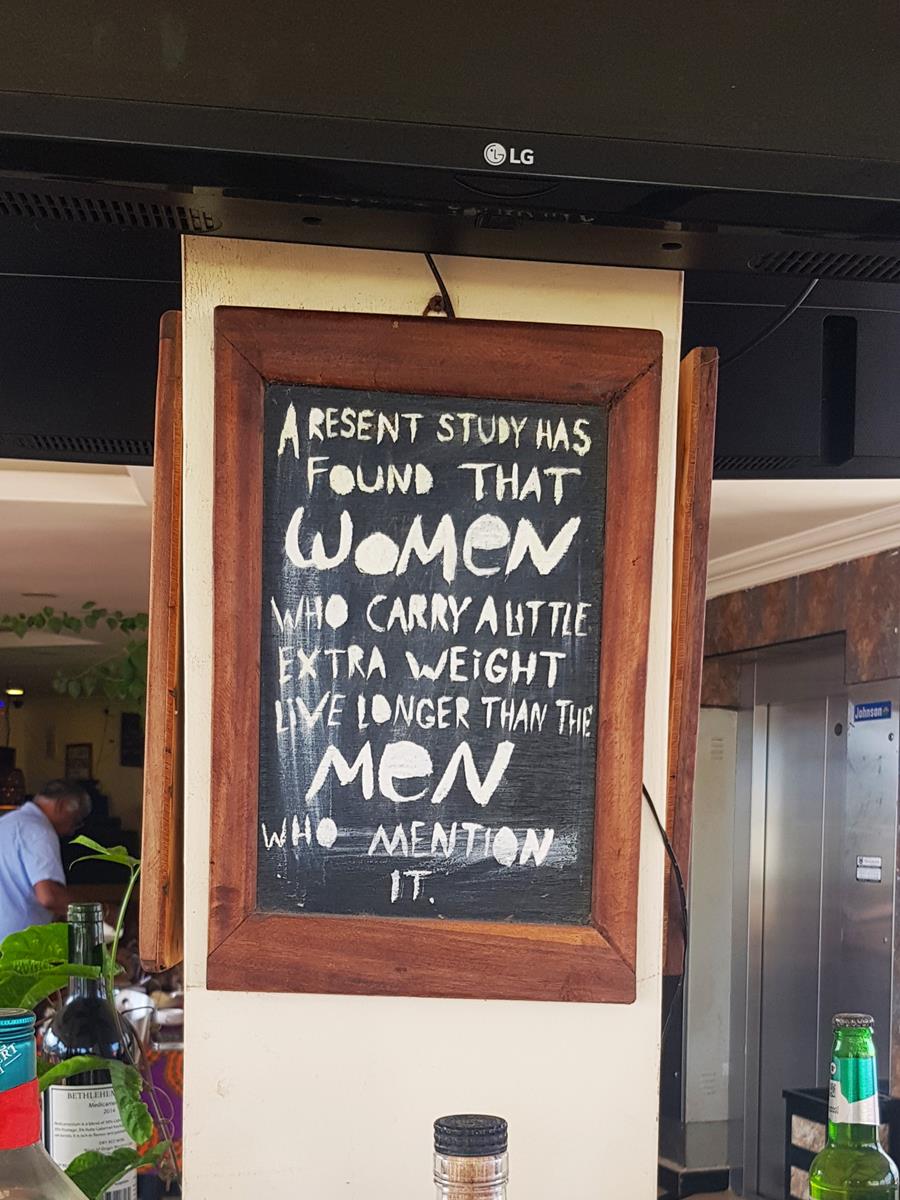 LG
A RESENT STUDY HAS
FOUND THAT
WOMEN
WHO CARRY A LITTLE
EXTRA WEIGHT
LIVE LONGER THAN THE
MEN
WHO MENTION
IT.
Johnson
BETHLEHE
Medicam
2014
DRY RED WINE